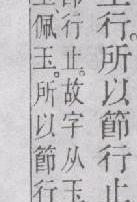 行。所以節行止
行止。故字从玉
佩玉。所以節行